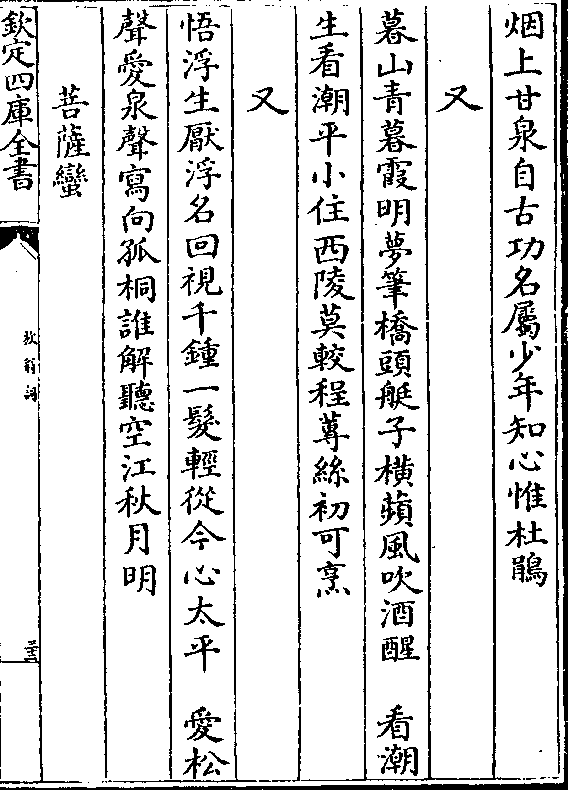 烟上甘泉自古功名屬少年知心惟杜鵑
又
暮山青暮霞明夢筆橋頭艇子橫蘋風吹酒醒　看潮
生看潮平小住西陵莫較程蓴絲初可烹
又
悟浮生厭浮名回視千鍾一髮輕從今心太平　愛松
聲愛泉聲寫向孤桐誰解聽空江秋月明
菩薩蠻
欽定四庫全書
放翁詞